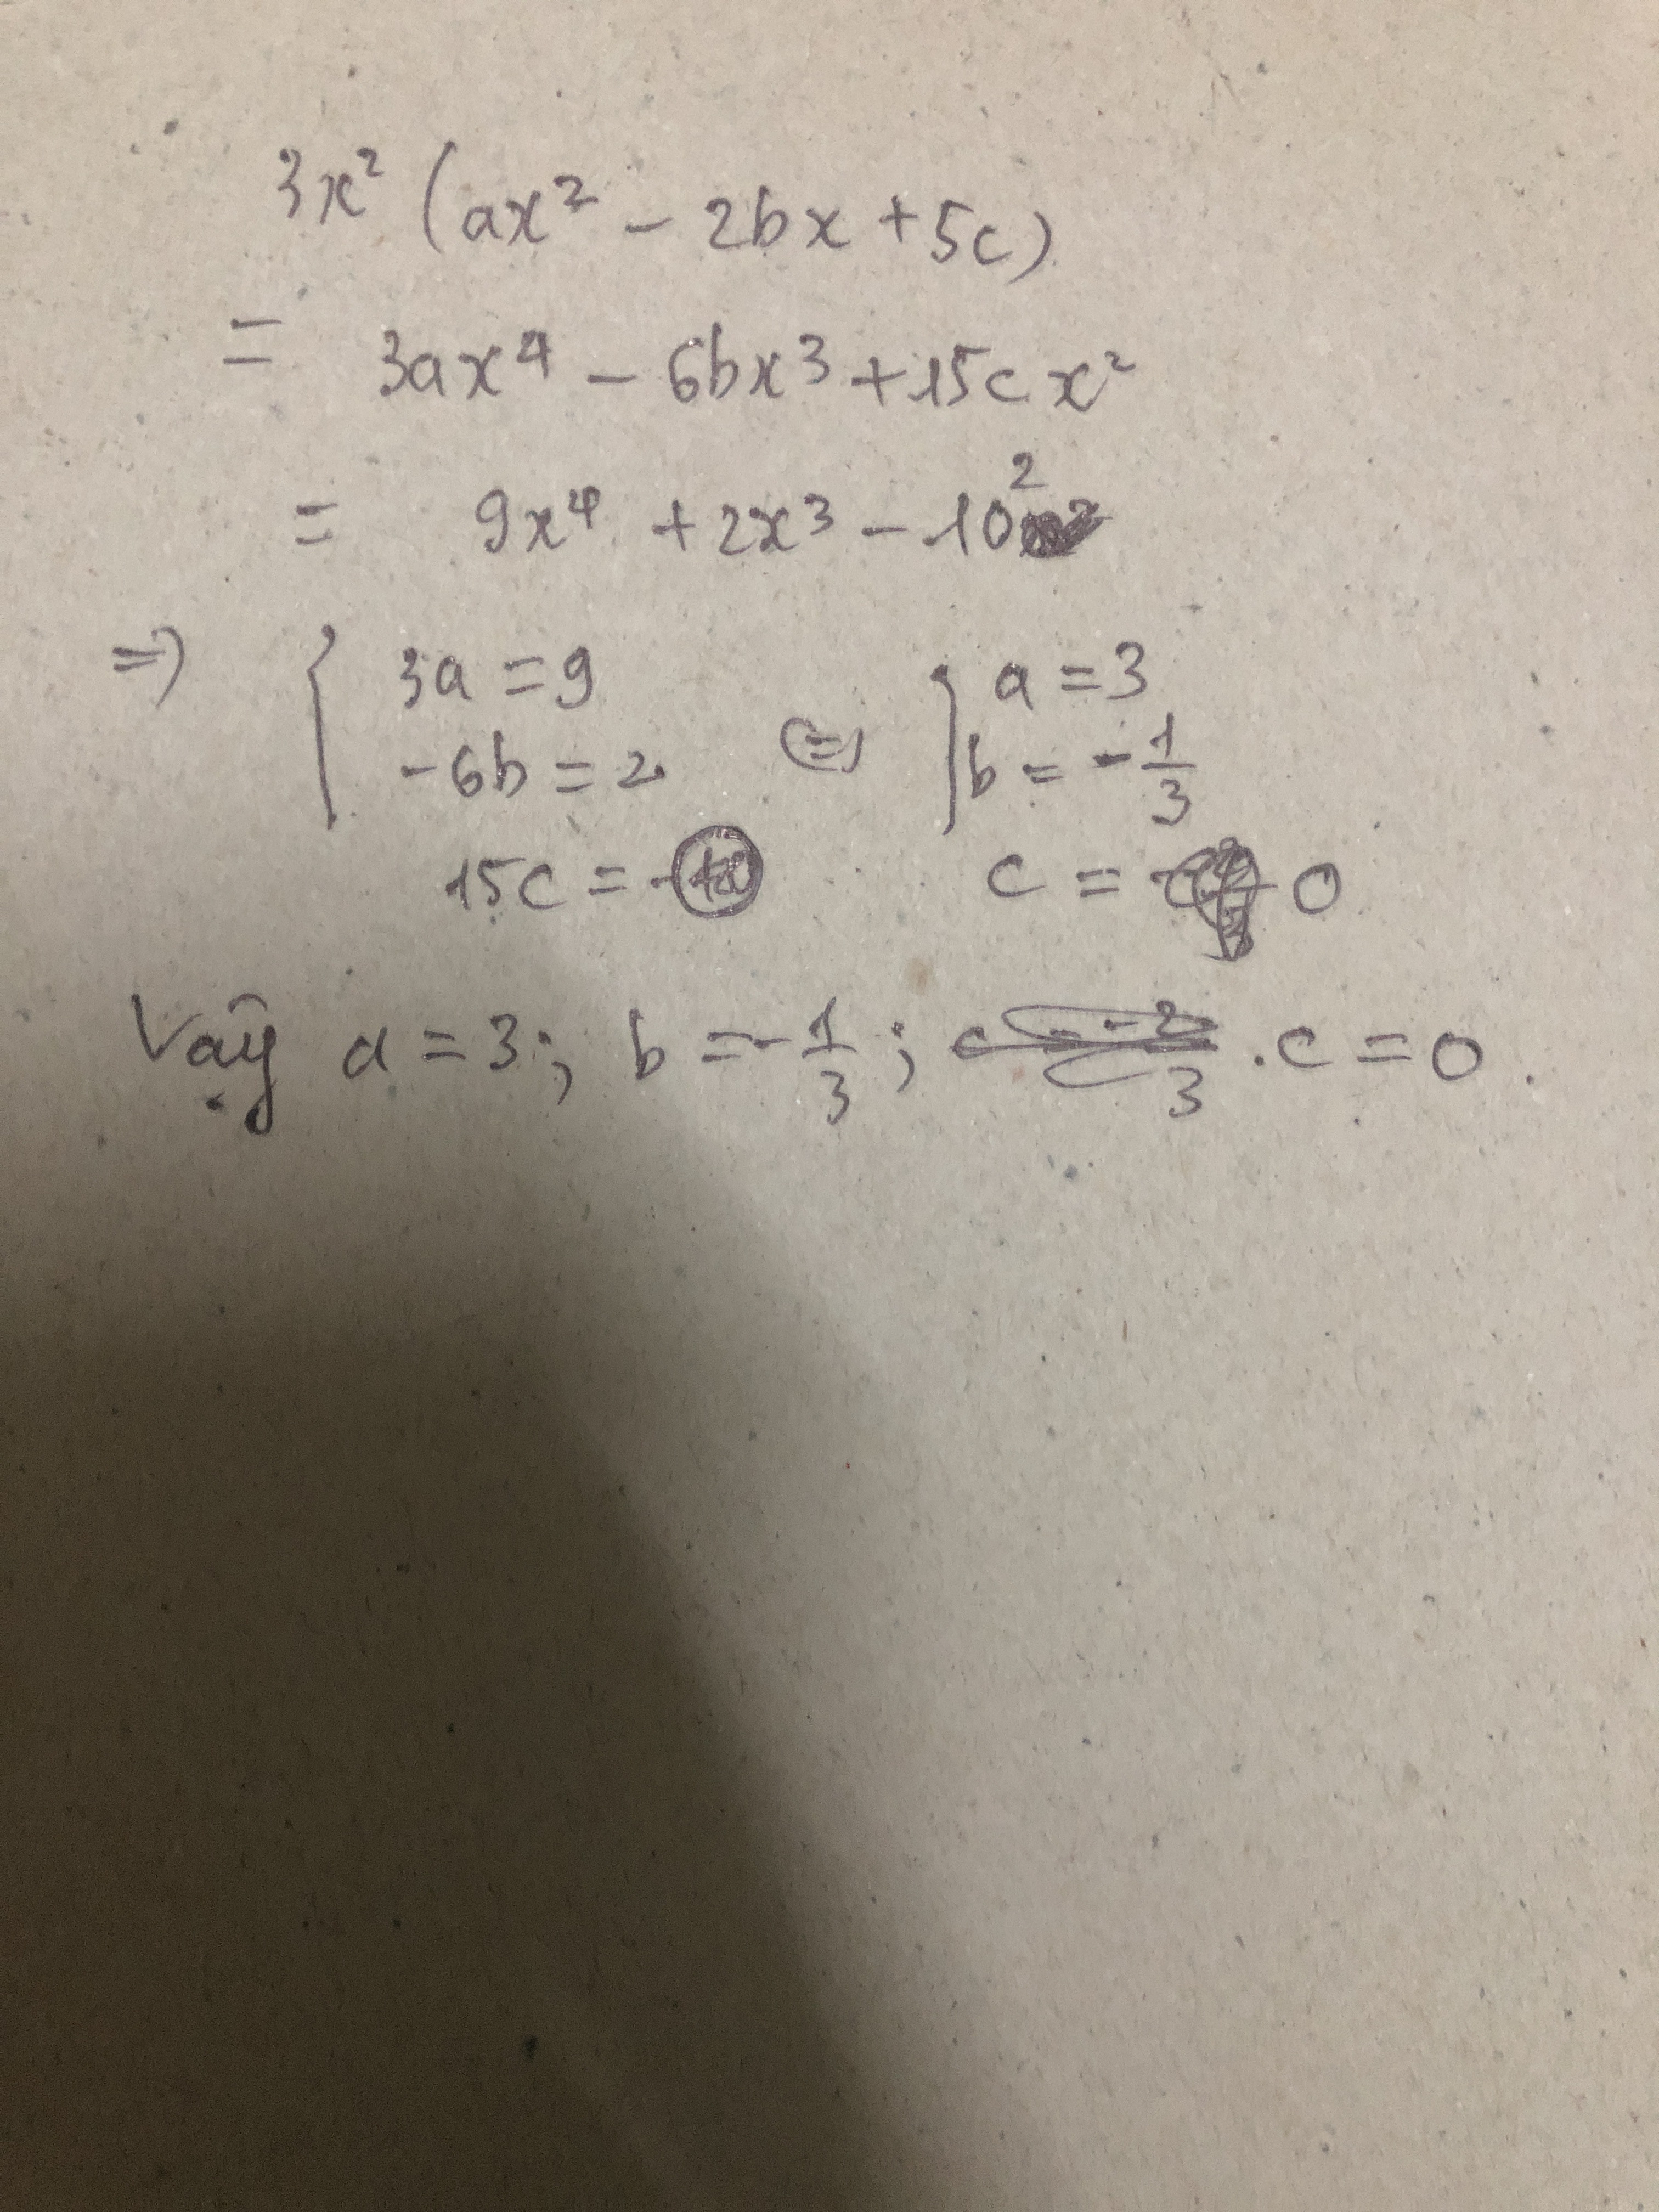 3x² (ax² - 2bx + 5c)
= 3ax⁴ - 6bx³ + 15cx²
= 9x⁴ + 2x³ - 10²
=> { 3a = 9 <=> { a = 3
-6b = 2 b = -1/3
15c = - c = 0
Vậy a = 3; b = -1/3; c = 0.